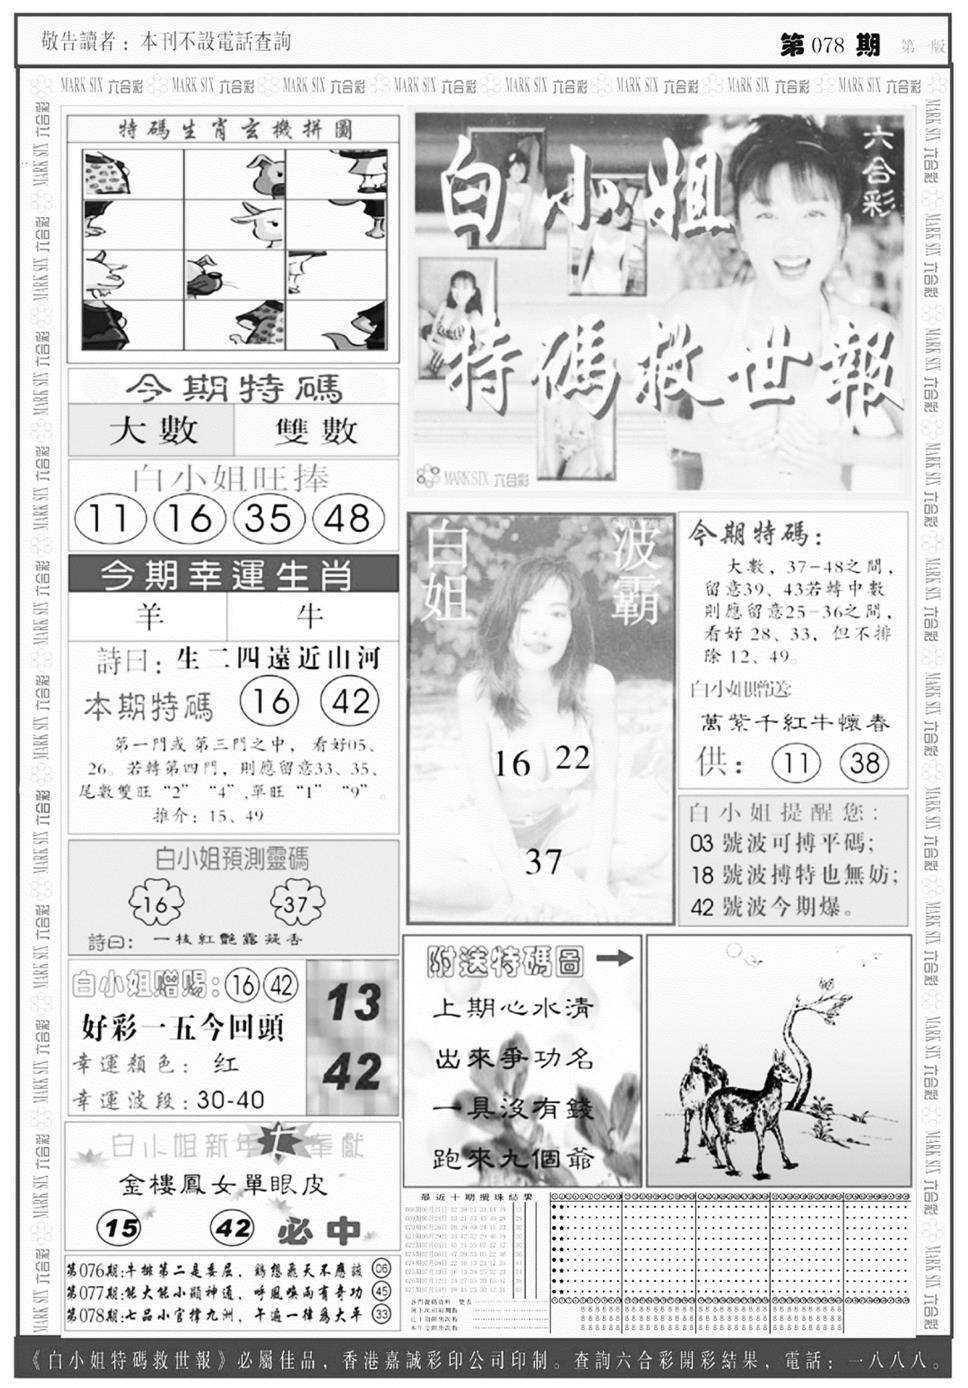 敬告讀者：本刊不設電話查詢
第078期 第一版
MARK SIX 六合彩
特碼生肖玄機拼圖
白小姐
六合彩
特碼救世報
MARK SIX 六合彩
今期特碼
大數 雙數
白小姐旺捧
11 16 35 48
今期幸運生肖
羊 牛
詩曰：生二四遠近山河
本期特碼 16 42
第一門或第三門之中，看好05、
26。若轉第四門，則應留意33、35、
尾數雙旺“2”“4”,單旺“1”“9”。
推介：15、49
白小姐預測靈碼
16 37
詩曰：一枝紅艷露凝香
白小姐贈賜：16 42
好彩一五今回頭
幸運顏色：红
幸運波段：30-40
13
42
白小姐新年奉獻
金樓鳳女單眼皮
15 42 必中
第076期:牛排第二是委屈，鷄想飛天不應該 06
第077期:能大能小顯神通，呼風喚雨有奇功 45
第078期:七品小官撑九洲，午遍一律為大平 33
白姐
波霸
16 22
37
今期特碼：
大數，37-48之間，
留意39、43若轉中數
則應留意25-36之間，
看好 28、33，但不排
除 12、49。
白小姐贈送:
萬紫千紅牛懷春
供： 11 38
白小姐提醒您：
03 號波可搏平碼；
18 號波搏特也無妨；
42 號波今期爆。
附送特碼圖
上期心水清
出來爭功名
一具沒有錢
跑來九個爺
最近十期攪珠結果
《白小姐特碼救世報》必屬佳品，香港嘉誠彩印公司印制。查詢六合彩開彩結果，電話：一八八八。